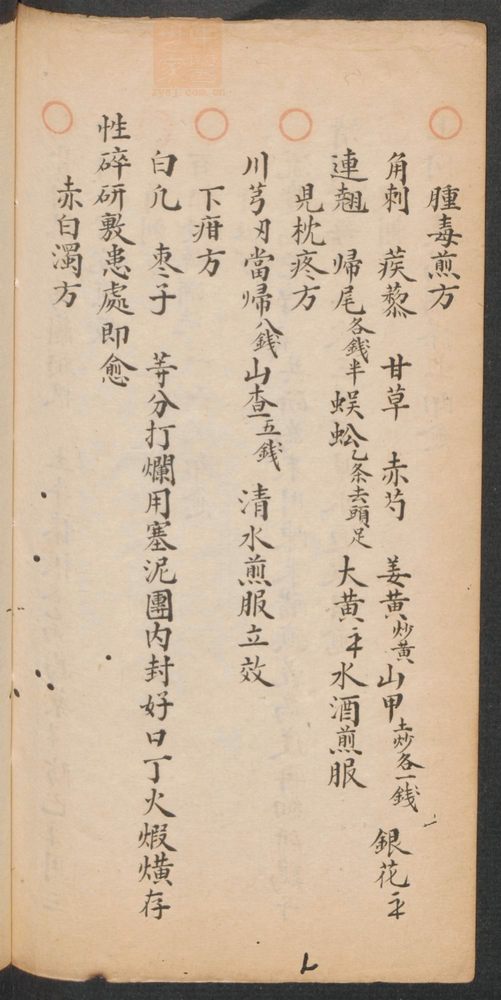 腫毒煎方
角刺 蒺藜 甘草 赤芍 姜黃炒黃山甲土炒各一錢 銀花
連翹 歸尾各錢半 蜈蚣乙条去頭足 大黃 水酒煎服
皃枕疼方
川芎 當歸八錢山查五錢 清水煎服立效
下疳方
白凡 枣子 等分打爛用塞泥團内封好口丁火煆熿存
性碎研敷患處即愈
赤白濁方
zysj.com.cn